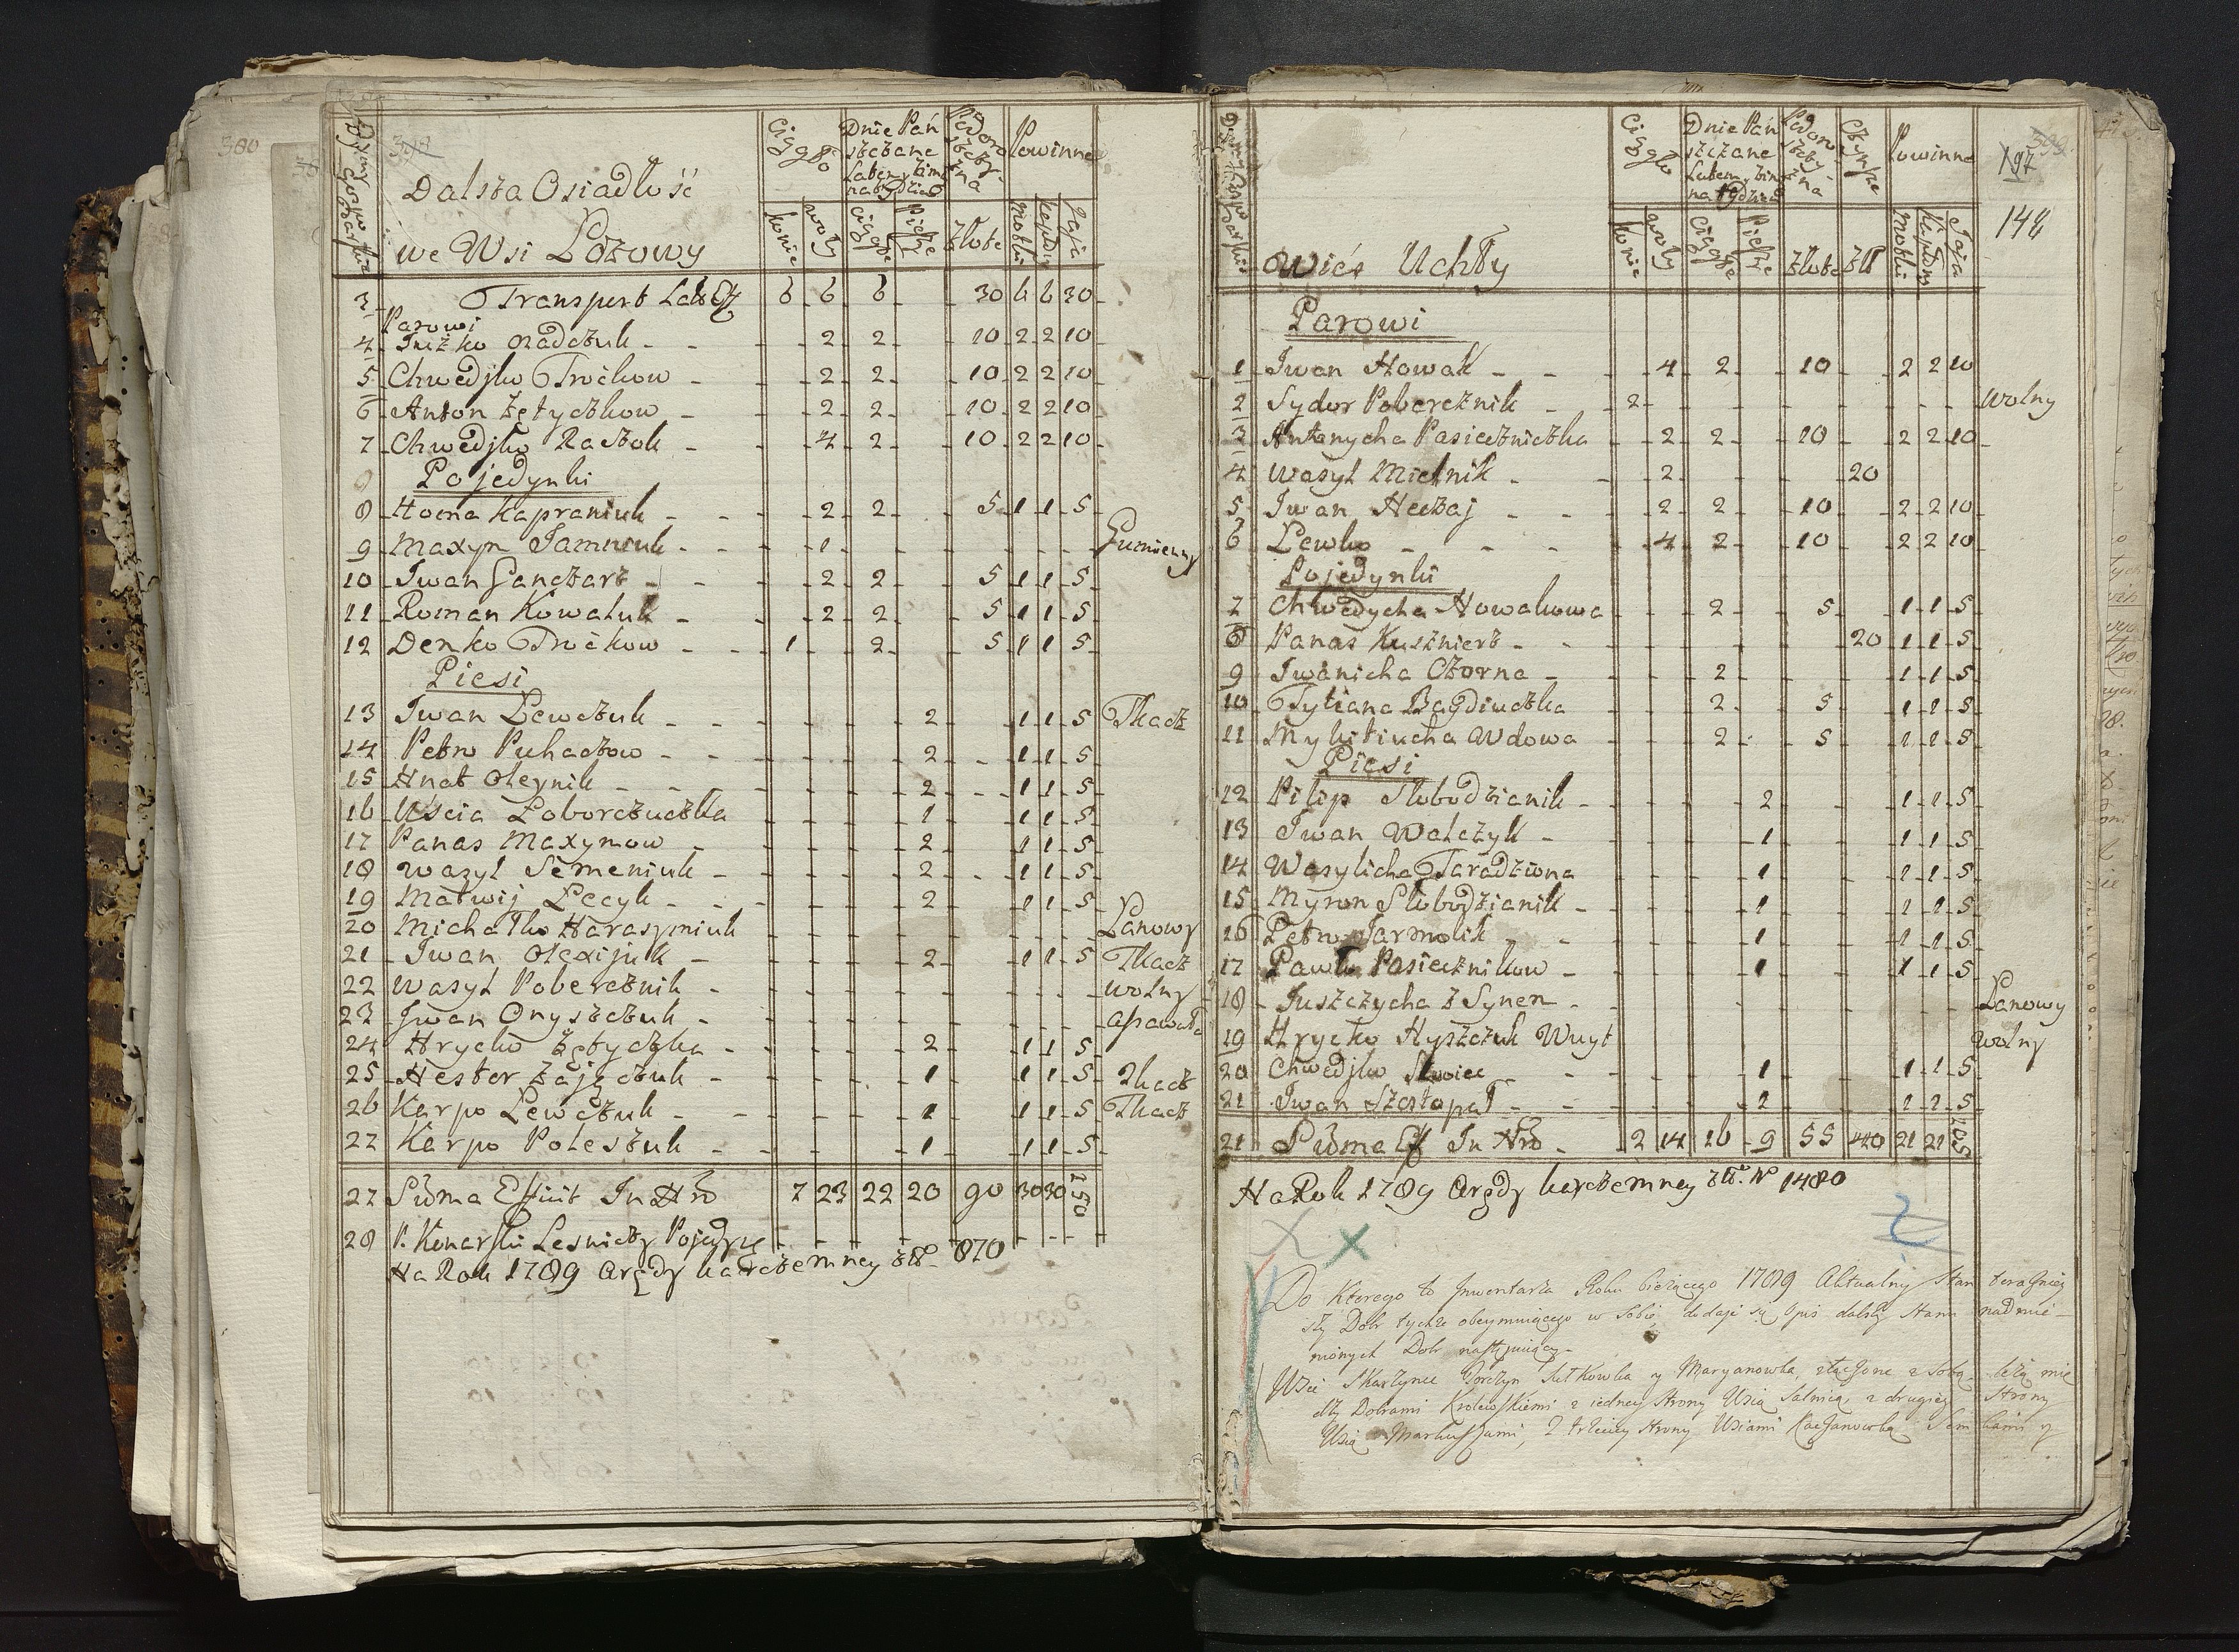 380
Dymy Gospodarskie
Dalsza Osiadłość
we Wsi Lozowy
Cią gło
Dnie Pań szczane Latem y Zimą na tydzień
Podorosczyzna
Powinne
konie
woły
Ciągłe
Piesze
złote
motki
kapłony
jaja
3 Transport Latus 6 6 6 30 6 6 30
Parowi
4 Juźko Radczuk - - 2 2 10 2 2 10
5 Chwedjko Troćkow - 2 2 10 2 2 10
6 Anton Zętyczkow - 2 2 10 2 2 10
7 Chwedjko Raczok - 4 2 10 2 2 10
Pojedynki
8 Howa Kapraniuk - - 2 2 5 1 1 5
9 Maxym Jamniuk - - 1 - - - Gumienny
10 Jwan Ganczarz - - 2 2 5 1 1 5
11 Roman Kowaluk - 2 2 5 1 1 5
12 Denko Troćkow - - 1 2 5 1 1 5
Piesi
13 Jwan Lewczuk - - 2 1 1 5 Tkacz
14 Petro Puhaczow - - 2 1 1 5
15 Hnat Oleynik - - 2 1 1 5
16 Uścia Loborczuczka 1 1 1 5
17 Panas Maxymow - 2 1 1 5
18 Wasyl Semeniuk - 2 1 1 5
19 Matwij Lecyk - - 2 1 1 5
20 Michałko Harasymiuk - - - Lanowy
21 Jwan Olexijuk - 2 1 1 5 Tkacz
22 Wasyl Pobereznik - - - - wolny
23 Jwan Onyszczuk - - - - Assawuła
24 Hrycko Zętyczka - 2 1 1 5
25 Nestor Zajączuk - 1 1 1 5 Tkacz
26 Karpo Lewczuk - - 1 1 1 5 Tkacz
27 Karpo Poleszuk - - 1 1 1 5
27 Suma Efficit In Nro 7 23 22 20 90 30 30 150
28 P. Konarski Lesniczy Pojedyne - - -
Na Rok 1789 Arędy karczemney złt. 870
197
148
Dymy Gospodarskie
Wieś Uchły
Cią gło
Dnie Pań szczane Latem y Zimą na tydzień
Podorosczyzna
Czynsze
Powinne
konie
woły
Ciągłe
Piesze
złote
złł
motki
kapłony
Jaja
Parowi
1 Jwan Nowak - - 4 2 10 2 2 10
2 Sydor Pobereznik - 2 - - - - wolny
3 Antanycha Pasieczniczka - 2 2 10 2 2 10
4 Wasyl Mielnik - - 2 - - 20
5 Jwan Neczaj - - 2 2 10 2 2 10
6 Lewko - - - 4 2 10 2 2 10
Pojedynki
7 Chwedycha Nowakowa - - 2 5 1 1 5
8 Panas Kusznierz - - 20 1 1 5
9 Jwanicha Czorna - - 2 1 1 5
10 Tytiana Bagdiuczka - - 2 5 1 1 5
11 Mykitiucha Wdowa - - 2 5 1 1 5
Piesi
12 Pilip Słobodzianik - - 2 1 1 5
13 Jwan Walczyk - - 1 1 1 5
14 Wasylicha Taradziona 1 1 1 5
15 Myron Słobodzianik - 1 1 1 5
16 Petro Jarmolik - - 1 1 1 5
17 Pawło Pasiecznikow - 1 1 1 5
18 Juszczycha z Synem - - - - Lanowy
19 Hrycko Hyszczuk Wuyt - - wolny
20 Chwedjko - - 1 1 1 5
21 Jwan Szostopał - - 2 1 1 5
21 Suma Eff In Nro - 2 14 16 9 55 40 21 21 105
Na Rok 1789 Arędy karczemney złł. No 1480
Do Ktorego to Jnwentarza Roku bieżącego 1789 Aktualny Stan teraźniey
szy Dobr tychże obeymuiącego w Sobie, dodaje się Opis dalszy Stanu nadmie
nionych Dobr następuiący.
Wsie Skarżynce Torczyn Sutkowka y Maryanowka, złączone z Sobą, leżą mie
dzy Dobrami Krolewskiemi z iedney Strony Wsią Salnicą z drugiey Strony
Wsią Markuszami, z trzeciey Strony Wsiami Kaczanowka Semkami y